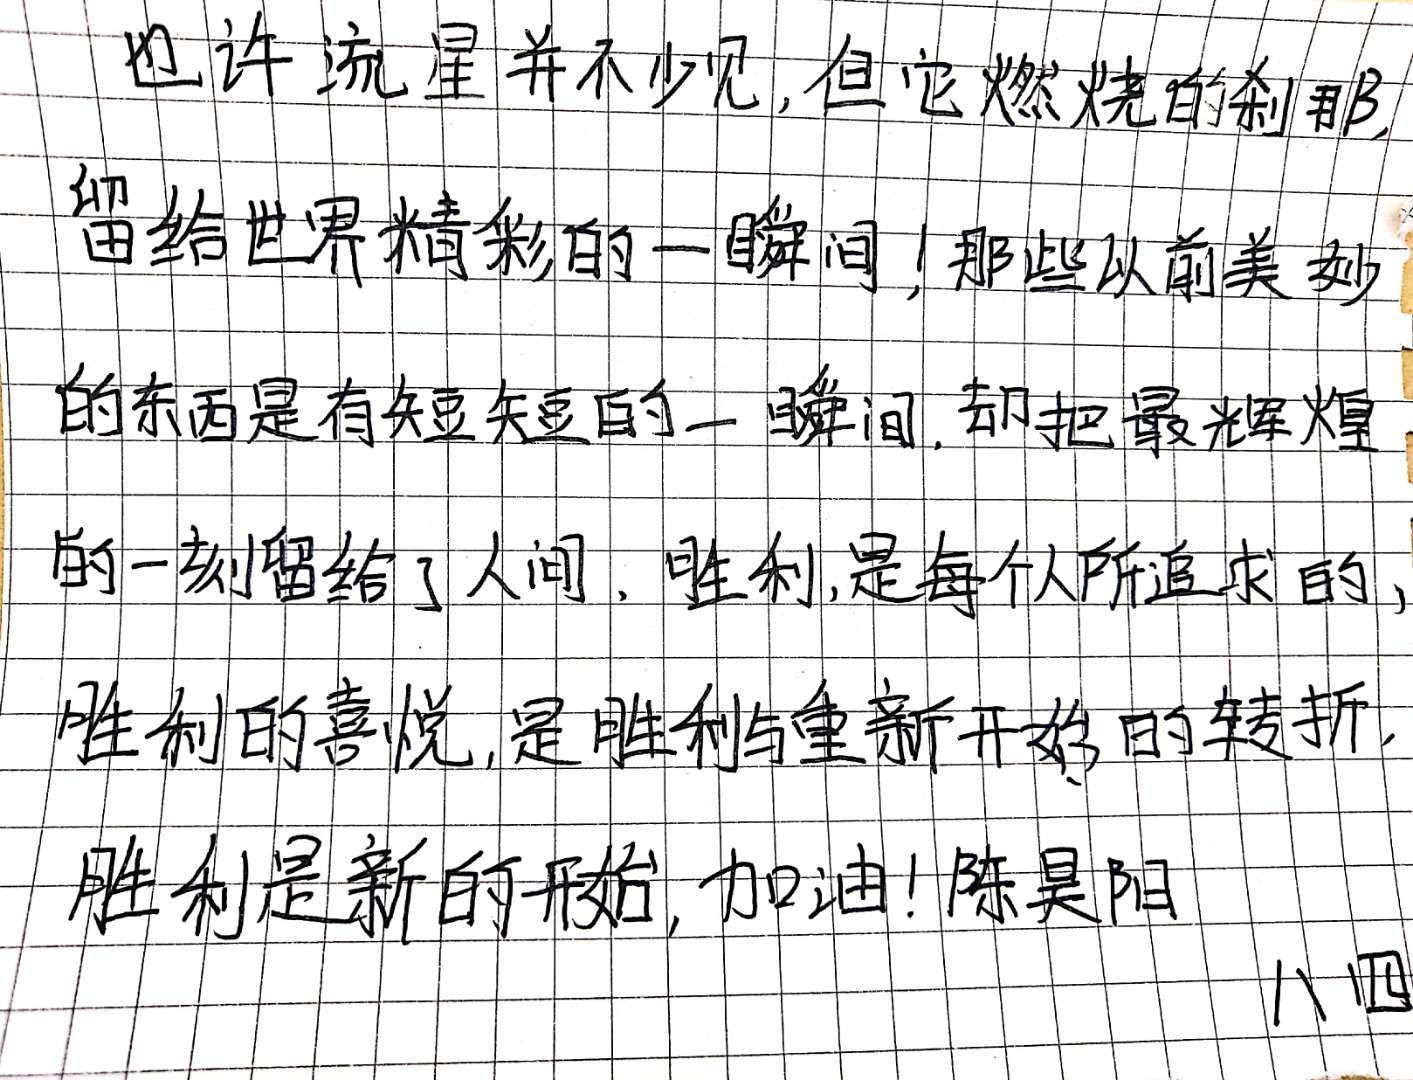 也许流星并不少见,但它燃烧的刹那,
留给世界精彩的一瞬间!那些以前美妙
的东西是有短短的一瞬间,却把最辉煌
的一刻留给了人间,胜利,是每个人所追求的,
胜利的喜悦,是胜利与重新开始的转折,
胜利是新的开始,加油!陈昊阳
八四